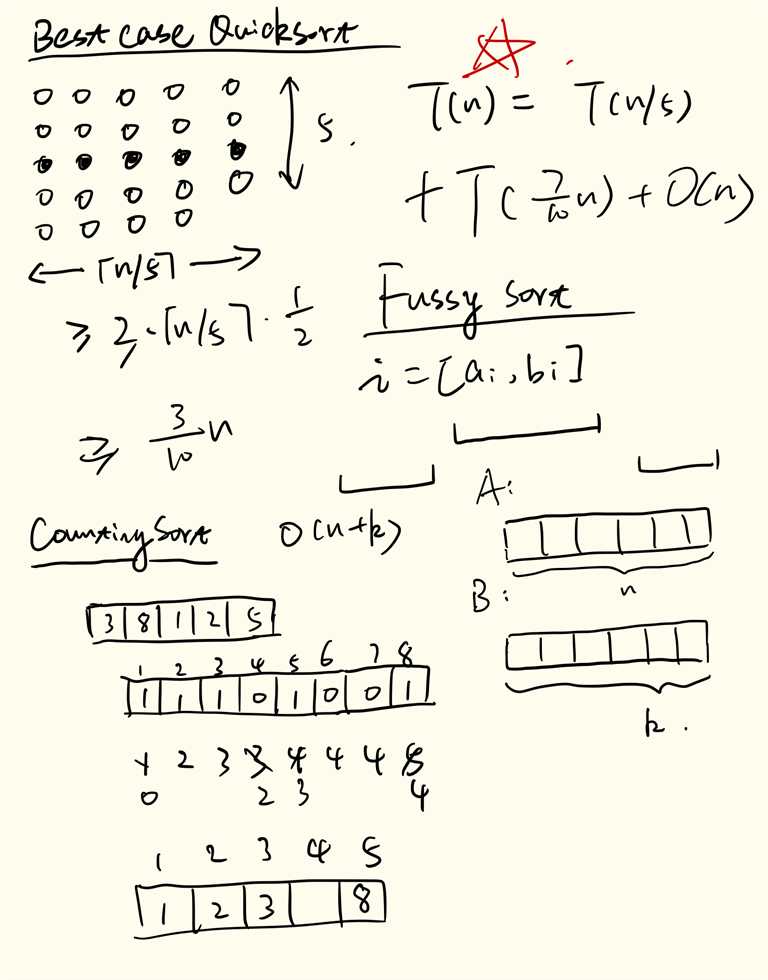 Best case Quicksort
5.
T(n) = T(n/5)
+ T(7/10 n) + O(n)
⌈n/5⌉
≥ 3·⌈n/5⌉·1/2
≥ 3/10 n
Fussy Sort
i = [ai, bi]
Counting Sort O(n+k)
A:
n
B:
k.
3 8 1 2 5
1 2 3 4 5 6 7 8
1 1 1 0 1 0 0 1
1 2 3 3 4 4 4 5
0 2 3 4
1 2 3 4 5
1 2 3 8